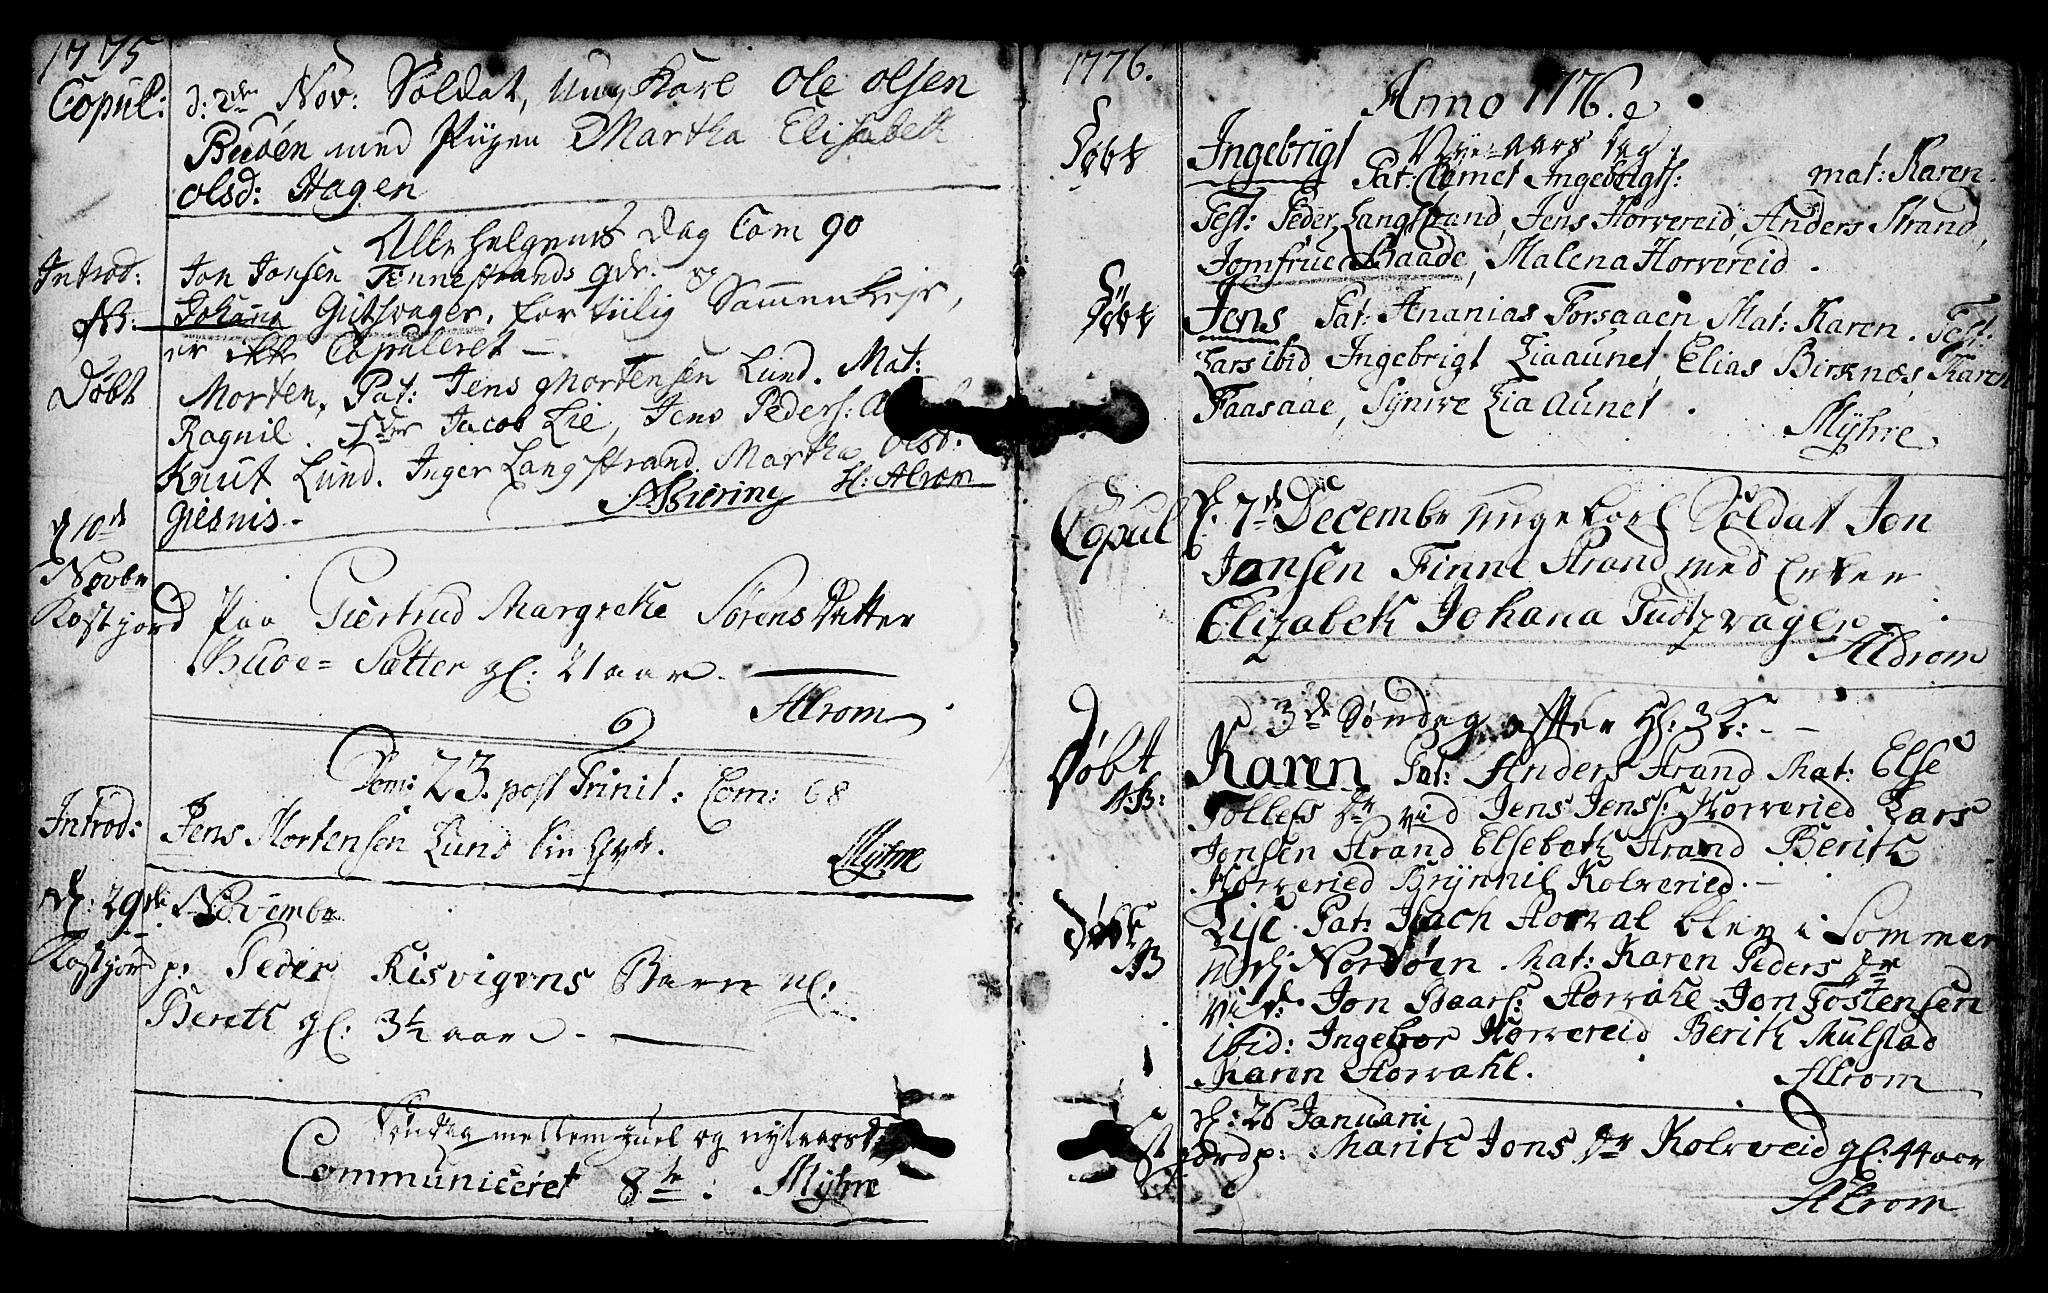 1775
Copul: d: 2den Nov: Soldat, Ung Karl Ole Olsen
Buöen med Pigen Martha Elisabeth
Olsd: Hagen
Alle helgens Dag Com 90
Introd: Jon Jonsen Finnestrands qde. og
NB: Johana Gutzvager, for tiilig Sammenleje,
er Copuleret —
Döbt Morten, Pat: Jens Mortensen Lund. Mat:
Ragnil. Jacob Lie, Jens Peders:
Knut Lund. Inger Langstrand Martha Olsd:
Giesnis. Biering H: Alrom
d 10de
Novbr
Kastjord Paa Giertrud Margrethe Sörens Datter
Buöe = Sætter gl: 21 aar. —
Alrom
Dom: 23. post Trinit: Com: 68
Introd: Jens Mortensen Lund sin qvde.
Myhre
d: 29de November
Kastjord p: Peder Risvigens Barn nl:
Bereth gl: 3½ aar. —
Söndag mellem Juel og nytaarsd
Communiceret 8te: Myhre
1776.
Anno 1776.
Nye-aars dag.
Döbt Ingebrigt Pat: Clemet Ingebrigts: mat: Karen.
Test: Peder Langstrand, Jens Horvereid, Anders Strand,
Jomfrue Baade, Malena Horvereid.
Döbt Jens Pat: Ananias Forsaaen Mat: Karen. Test:
Lars ibid Ingebrigt Liaaunet, Elias Birknæs, Karen
Faasaae, Synve Lia Aunet.
Myhre
Copul d. 7de Decembr Ungekarl Soldat Jon
Jonsen Finne Strand med Enken
Elizabeth Johana Gudtzvager
Aldrom
3de Söndag efter H: 3 K: —
Döbt NB: Karen Pat: Anders Strand Mat: Else
Tollefs Dr vid Jens Jenss: Horveried Lars
Jonsen Strand Elsebeth Strand Berith
Horveried Brynnil Kolveried. —
Döbt NB Lise Pat: Isach Horval blev i Sommer
Nordöen Mat: Karen Peders Dr
vid: Jon Baars: Horvahe Jon Tostensen
ibid: Ingebor Horvereid Berith Mulstad
Karen Horvahl. Alrom
d: 26 Januari
Kastjord p: Marith Jons Dr Kolvereid gl: 44 aar
Alrom